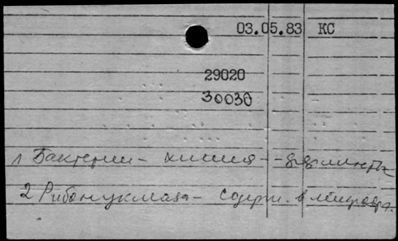 03.05.83 КС
29020
30030
1 Бактерии - химия -
2 Рибонуклеаза - содерж. в